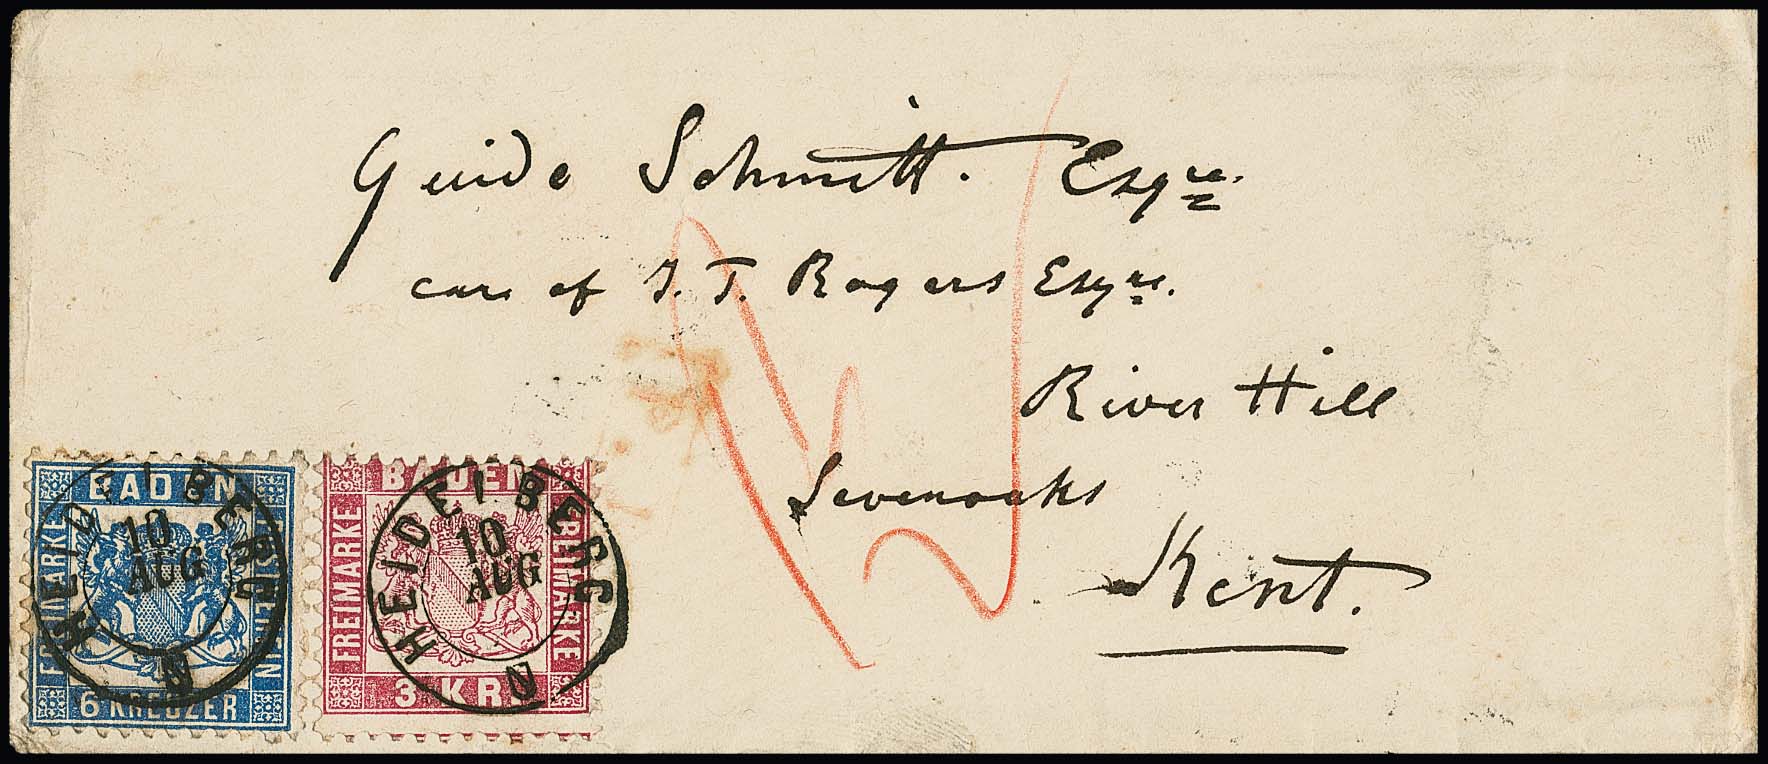 Guido Schmitt. Esqre.
care of T. T. Rogers Esqre.
River Hill
Sevenoaks
Kent.
BADEN
FREIMARKE
POSTVEREIN
6 KREUZER
HEIDELBERG
10
AUG
N
BADEN
FREIMARKE
FREIMARKE
3 KR
HEIDELBERG
10
AUG
N